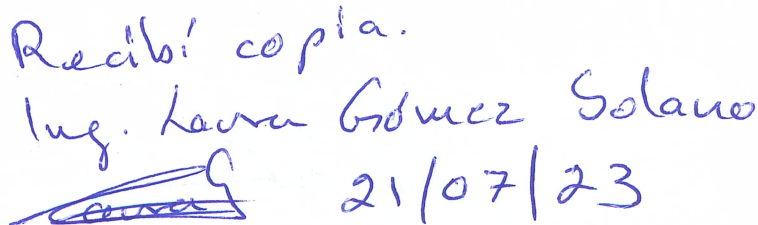 Recibí copia.
Ing. Laura Gómez Solano
LauraG 21/07/23